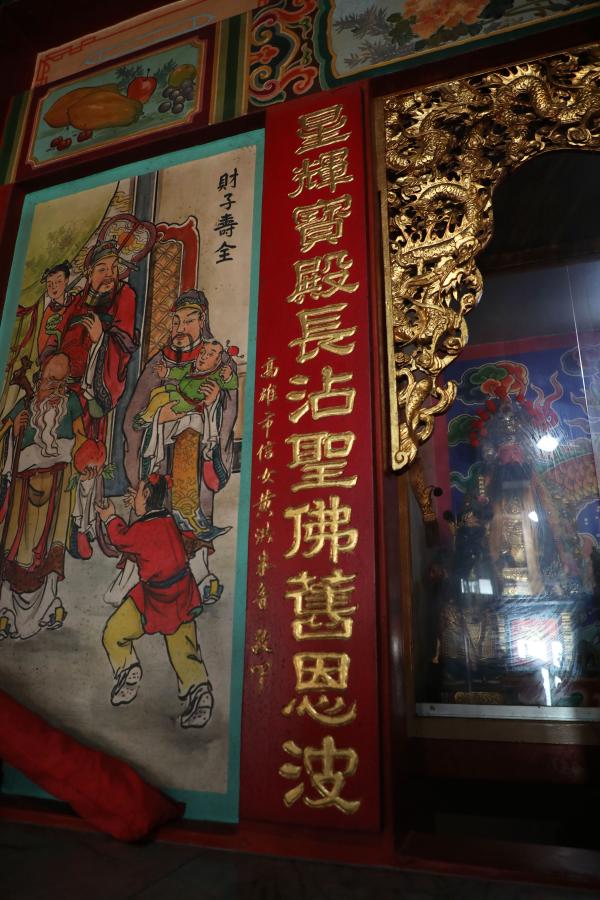 星輝寶殿長沾聖佛舊恩波
高雄市信女黃洪
財子壽全